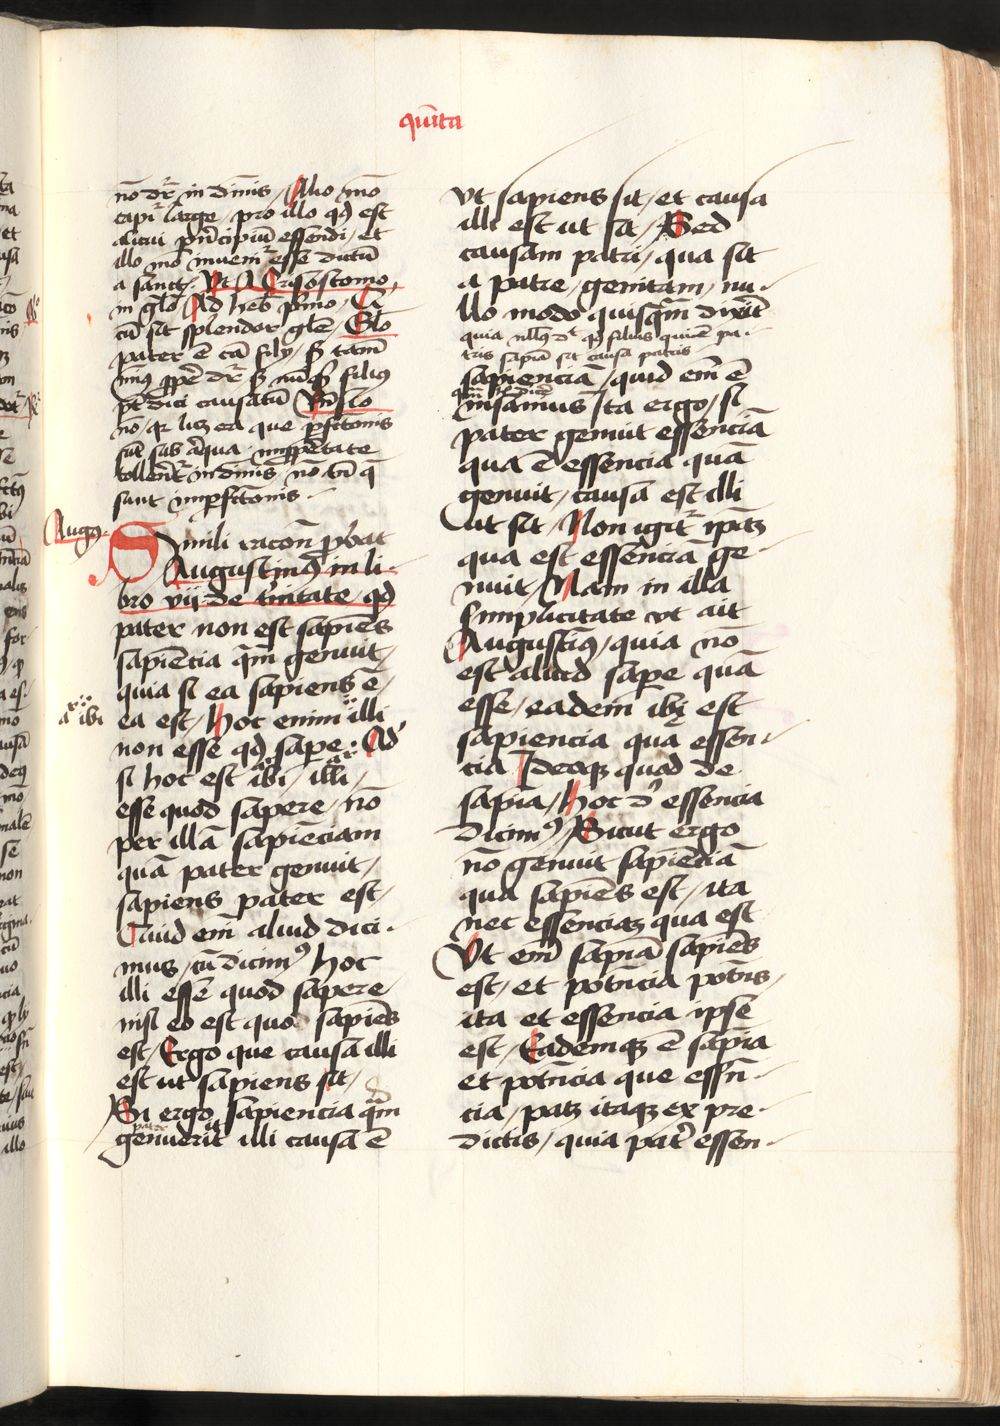 quīta
nō dr̄ in dīnis / Alio mō
capiʳ large / pro illo qđ est
alicui prīcipiū essendi / et
illo mō inueniʳ esse dictū
a sanct̄ · Vt a Crisostomo
in glō Ad heb prīmo / Cū
cū sit splendor glē / Glō
pater ē cā filij / sʒ tamē
min9 ꝓpē dr̄ sʒ
pt dici causatū
nō
sūt sub
tollent̄ in dīnis / nō tn̄ q̄
sunt imꝑfctōnis ·
Augus
Simili racōn ꝓbat
Augustin9 in li·
bro vij de tīnitate qđ
pater non est sapiēs
sapiēcia qm̄ genuit /
quia si ea sapiens ē /
ea est / Hoc enim illi
a ibi
non esse qđ sape : Ad
si hoc est ibi / illi
esse quod sapere / nō
per illā sapiēciam
quā pater genuit /
sapiens pater est /
Quid em̄ aliud dici·
mus / cū dicim9 hoc
illi esse quod sapere
nisi eo est quo sapiēs
est / Ergo que causa illi
est ut sapiens sit /
Si ergo sapiencia qm̄
pater
genuerit illi causa ē
Vt sapiens sit / et causa
illi est ut sit / Sed
causam patri / qua sit
a patre / genitam / nu·
llo modo quisqm̄ dixit
quia null9 dt qđ filius
tris sapia sit causa patris
sapienciā / quid em̄ ē
insanius / Ita ergo / si
pater genuit essenciā
qua ē essencia quā
genuit / causa est illi
ut sit / Non igitʳ ip̄aʒ
qua est essencia ge·
nuit / Nam in illa
simplicitate vt ait
Augustin9 / quia nō
est aliud sape quā
esse / eadem ibi est
sapiencia qua essen·
cia Ideoqʒ quod de
sapia / Hoc d' essencia
dicim9 / Sicut ergo
nō genuit sapienciā
qua sapiēs est / ita
nec essenciaʒ qua est
Vt em̄ sapiā sapiēs
est / et potn̄cia potn̄s /
ita et essencia ipse
est / Eademqʒ ē sapia
et potn̄cia que essn̄·
cia / patʒ itaqʒ ex pre·
dictis / quia pat̄ essen·